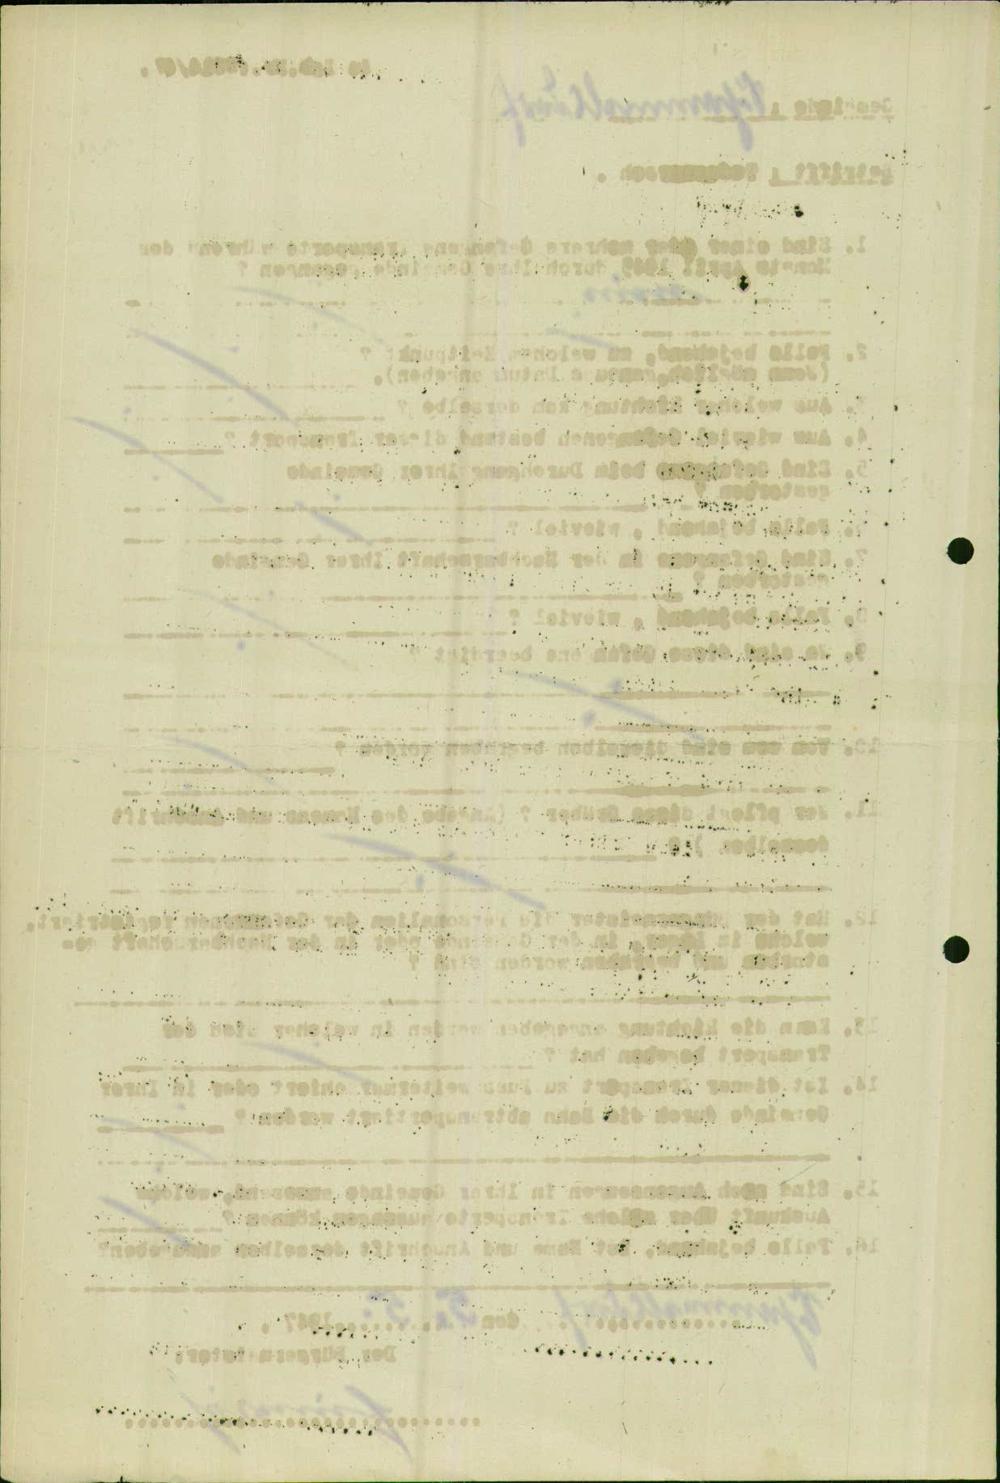 Gemeinde :
Betrifft : Todesmarsch .
1. Sind einer oder mehrere Gefangene Transporte während des
Monats April 1945 durch Ihre Gemeinde gegangen ?
nein
2. Falls bejahend, zu welchem Zeitpunkt ?
(Wenn möglich, genaues Datum angeben).
3. Aus welcher Richtung kam derselbe ?
4. Aus wieviel Gefangenen bestand dieser Transport ?
5. Sind Gefangene beim Durchgang Ihrer Gemeinde
gestorben ?
6. Falls bejahend , wieviel ?
7. Sind Gefangene in der Nachbarschaft Ihrer Gemeinde
gestorben ?
8. Falls bejahend , wieviel ?
9. Wo sind diese Gefangene beerdigt ?
10. Von wem sind dieselben begraben worden ?
11. Wer pflegt diese Gräber ? (Angabe des Namens und Anschrift
desselben ) ?
12. Hat der Bürgermeister die Personalien der Gefangenen registriert,
welche im Lager, in der Gemeinde oder in der Nachbarschaft ge-
storben und begraben worden sind ?
13. Kann die Richtung angegeben werden in welcher sich der
Transport begeben hat ?
14. Ist dieser Transport zu Fuss weitermarschiert oder in Ihrer
Gemeinde durch die Bahn abtransportiert worden ?
15. Sind noch Augenzeugen in Ihrer Gemeinde anwesend, welche
Auskunft über solche Transporte aussagen können ?
16. Falls bejahend, ist Name und Anschrift derselben anzugeben?
den 5. 5. 1947 .
Der Bürgermeister: